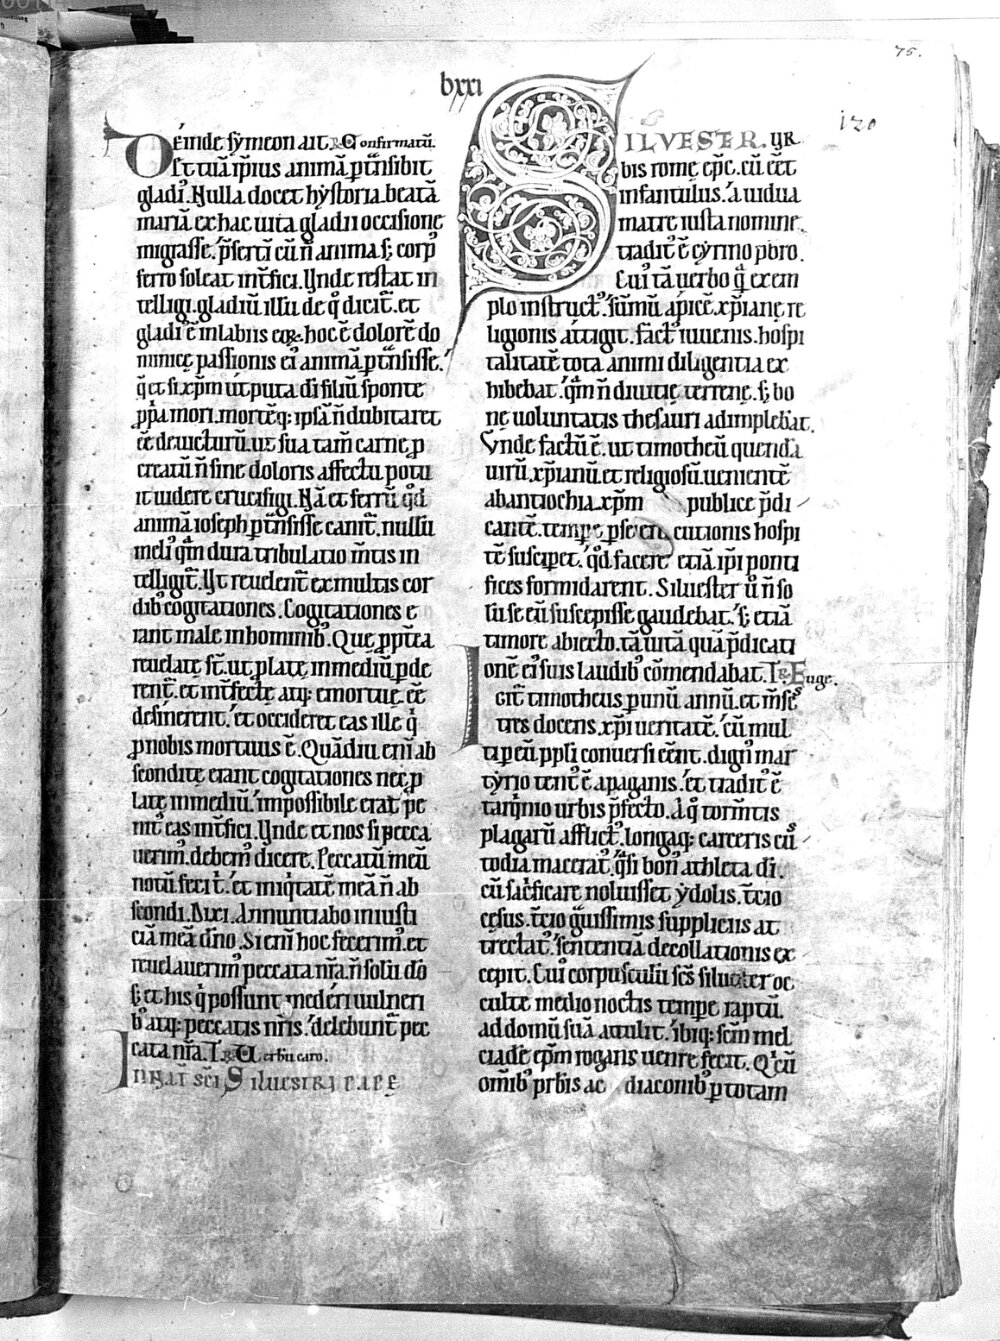 75.
120
lxxi
Deinde sẏmeon ait. R̷ Confirmatū.
Et tuā ip̄ius animā ꝑtn̄sibit
gladi᷒. Nulla docet hẏstoria beatā
mariā ex hac uita gladii occisione
migrasse. p̄serti cū n̄ anima sꝫ corp᷒
ferro soleat int̄fici. Vnde restat in
telligi. gladiū illū de qͦ dicit̄. et
gladi᷒ ē in labiis eoꝝ. hoc ē dolorē do
minicę passionis ei᷒ animā ꝑtn̄sisse.
q̄ et si xp̄m utputa dī filiū sponte
ꝓpͥa mori. mortēqꝫ ipsā n̄ dubitaret
eē deuicturū. ut sua tam̄ carne ꝓ
creatū n̄ sine doloris affectu potu
it uidere crucifigi. Nā et ferrū qd̄
animā ioseph ꝑtn̄sisse canit̄. nullū
meli᷒ qͣm dura tribulatio m̄tis in
telligit̄. Vt reuelent̄ ex multis cor
dib᷒ cogitationes. Cogitationes e
rant male in hominib᷒. Quę ꝓpt̄ea
reuelatę st̄. ut ꝓlatę in mediū ꝑde
rent̄. et int̄fectę atqꝫ emortuę eē
desinerent. et occideret eas ille qͥ
ꝓ nobis mortuus ē. Quādiu enī ab
sconditę erant cogitationes nec ꝓ
latę in mediū. impossibile erat pe
nit᷒ eas int̄fici. Vnde et nos si pecca
uerim᷒. debem᷒ dicere. Peccatū meū
notū feci t̄. et iniqͥtatē meā n̄ ab
scondi. Dixi. Annuntiabo iniusti
ciā meā dn̄o. Si enī hoc fecerim᷒. et
reuelauerim᷒ peccata nr̄a. n̄ solū dō
sꝫ et his qͥ possunt mederi uulneri
b᷒ atqꝫ peccatis nr̄is. delebunt̄ pec
cata nr̄a. T. R̷ Verbū caro.
IN NAT̄ SC̄I SILUESTRI PAPĘ
SILVESTER. VR
bis romę ep̄c. cū eēt
infantulus. a uidua
matre iusta nomine.
tradit᷒ ē cẏrino p̄bro.
Cui᷒ tā uerbo qͣ exem
plo instruct᷒. sūmū apicē xp̄ianę re
ligionis attigit. fact᷒ iuuenis. hospi
talitatē tota animi diligentia ex
hibebat. qͣm n̄ diuitię terrenę. sꝫ bo
nę uoluntatis thesauri adimplebāt.
Vnde factū ē. ut timotheū quendā
uirū xp̄ianū. et religiosū. uenientē
ab antiochia. xp̄m publice p̄di
cantē. temꝑe ꝑsecutionis hospi
tē susciperet. qd̄ facere etiā ip̄i ponti
fices formidarent. Siluester ū n̄ so
lū se eū suscepisse gaudebat. sꝫ etiā
timore abiecto. tā uitā quā p̄dicati
onē ei᷒ suis laudib᷒ cōmendabat. T. R̷ Euge.
Igit̄ timotheus ꝑ unū annū. et m̄ses
tres docens xp̄i ueritatē. cū mul
ti ꝑ eū pp̄li conuersi eēnt. dign᷒ mar
tẏrio tent᷒ ē a paganis. et tradit᷒ ē
tarqͥnio urbis p̄fecto. A qͦ torm̄tis
plagarū afflict᷒. longaqꝫ carceris cu
stodia macerat᷒. qͣsi bon᷒ athleta dī.
cū sac̄ficare noluisset ẏdolis. tc̄io
cesus. tc̄io gͣuissimis suppliciis at
trectat᷒. sententiā decollationis ex
cepit. Cui᷒ corpusculū sc̄s siluester oc
culte medio noctis temꝑe raptū.
ad domū suā attulit. ibiqꝫ sc̄m mel
ciadē ep̄m rogans uenire fecit. Qͥ cū
om̄ib᷒ prb̄is ac diaconib᷒ ꝑ totam